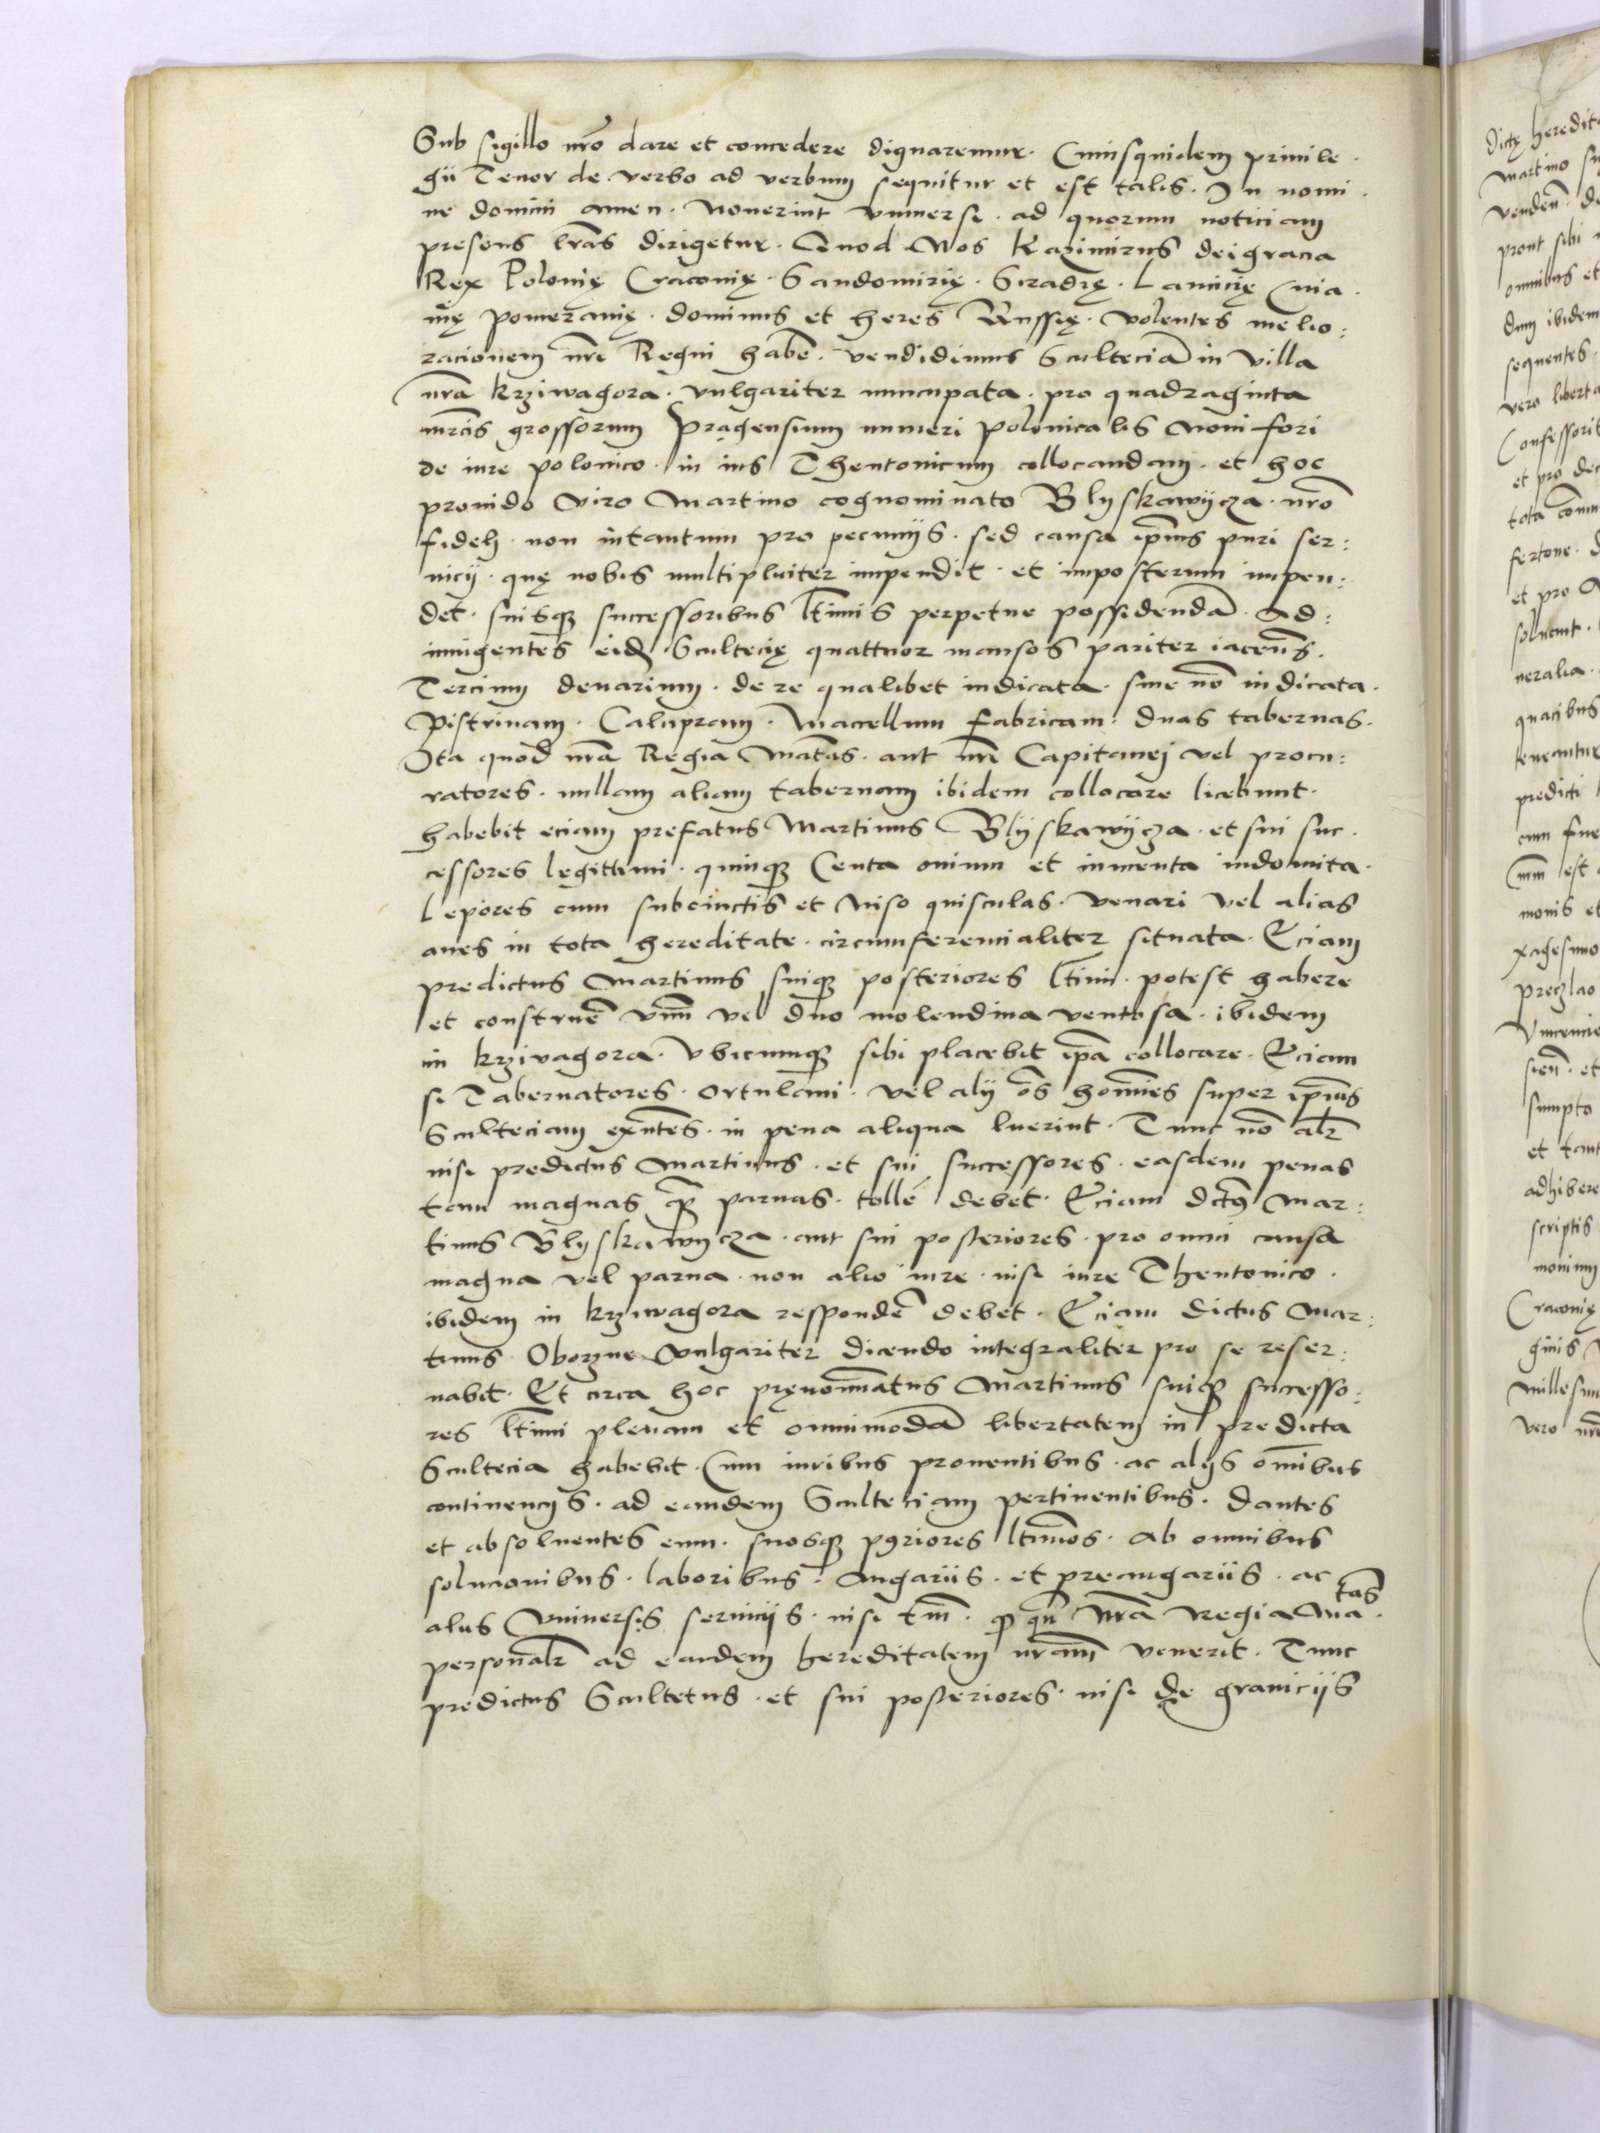 Sub sigillo nrō dare et concedere dignaremur · Cuiusquidem priuile ·
gii Tenor de verbo ad verbum sequitur et est talis · In nomi ·
ne domini amen · Nouerint vniuersi · ad quorum noticiam
presens lrās dirigetur · Quod Nos Kazimirus deigracia
Rex Polonię Cracouię · Sandomirię · Siradię · Lancicię Cuia ·
uię pomeranię · dominus et heres Russię · volentes melio :
racionem nrī Regni habē · vendidimus Sculteciā in villa
nrā krziwagora · vulgariter nuncupata · pro quadraginta
mrcīs grossorum Pragensium numeri polonicalis Noui fori
de iure polonico · in ius Theutonicum collocandam · et hoc
prouido viro Martino cognominato Blyskawycza · nrō
fideli · non intantum pro pecunijs · sed causa ipīus puri ser :
uicij · quę nobis multipliciter impendit · et imposterum impen :
det · suisqꝫ successoribus ltīmis perpetue possidendā · Ad :
iungentes eidꝫ Scultecię quattuor mansos pariter iacentēs ·
Tercium denarium · de re qualibet iudicata · siue nō iudicata ·
Pistrinam · Calupram · Macellum fabricam · duas tabernas ·
Ita quod nrā Regia Matās · aut nrī Capitanej vel procu :
ratores · nullam aliam tabernam ibidem collocare licebunt ·
habebit eciam prefatus Martinus Blyskawycza · et sui suc ·
cessores legittimi · quinqꝫ Centa ouium et iumenta indomita ·
Lepores cum subcinctis et Niso quisculas · venari vel alias
aues in tota hereditate · circumferencialiter situata · Eciam
predictus Martinus suiqꝫ posteriores ltīmi · potest habere
et construē vnū vel duo molendina ventosa · ibidem
in krzivagora · vbicumqꝫ sibi placebit ipā collocare · Eciam
si Tabernatores · ortulani · vel alij oēs homīnes super ipīus
Sculteciam exntēs · in pena aliqua luerint · Tunc nō alr̄
nisi predictus Martinus · et sui successores · easdem penas
tam magnas qꝫ paruas · tollē debet · Eciam dctꝰ Mar :
tinus Blyskawycza · aut sui posteriores · pro omni causa
magna vel parua · non alio iure · nisi iure Theutonico ·
ibidem in krziwagora respondē debet · Eciam dictus Mar :
tinus · Oborzne vulgariter dicendo integraliter pro se reser :
uabit · Et circa hoc pręnoīnatus Martinus suiqꝫ successo :
res ltīmi plenam et omnimodā libertatem in predicta
Scultecia habebit · Cum iuribus prouentibus · ac alijs omībus
continencijs · ad eandem Scultetiam pertinentibus · dantes
et absoluentes eum · suosqꝫ pꝯriores ltīmos · Ab omnibus
solucionibus · laboribus · Angariis · et preangariis · ac
aliis Vniuersis seruicijs · nisi tm̄ · ꝙ qn̄ Nrā Regia Matās ·
personalr̄ ad eandem hereditatem nrām venerit · Tunc
predictus Scultetus · et sui posteriores · nisi de graniciis